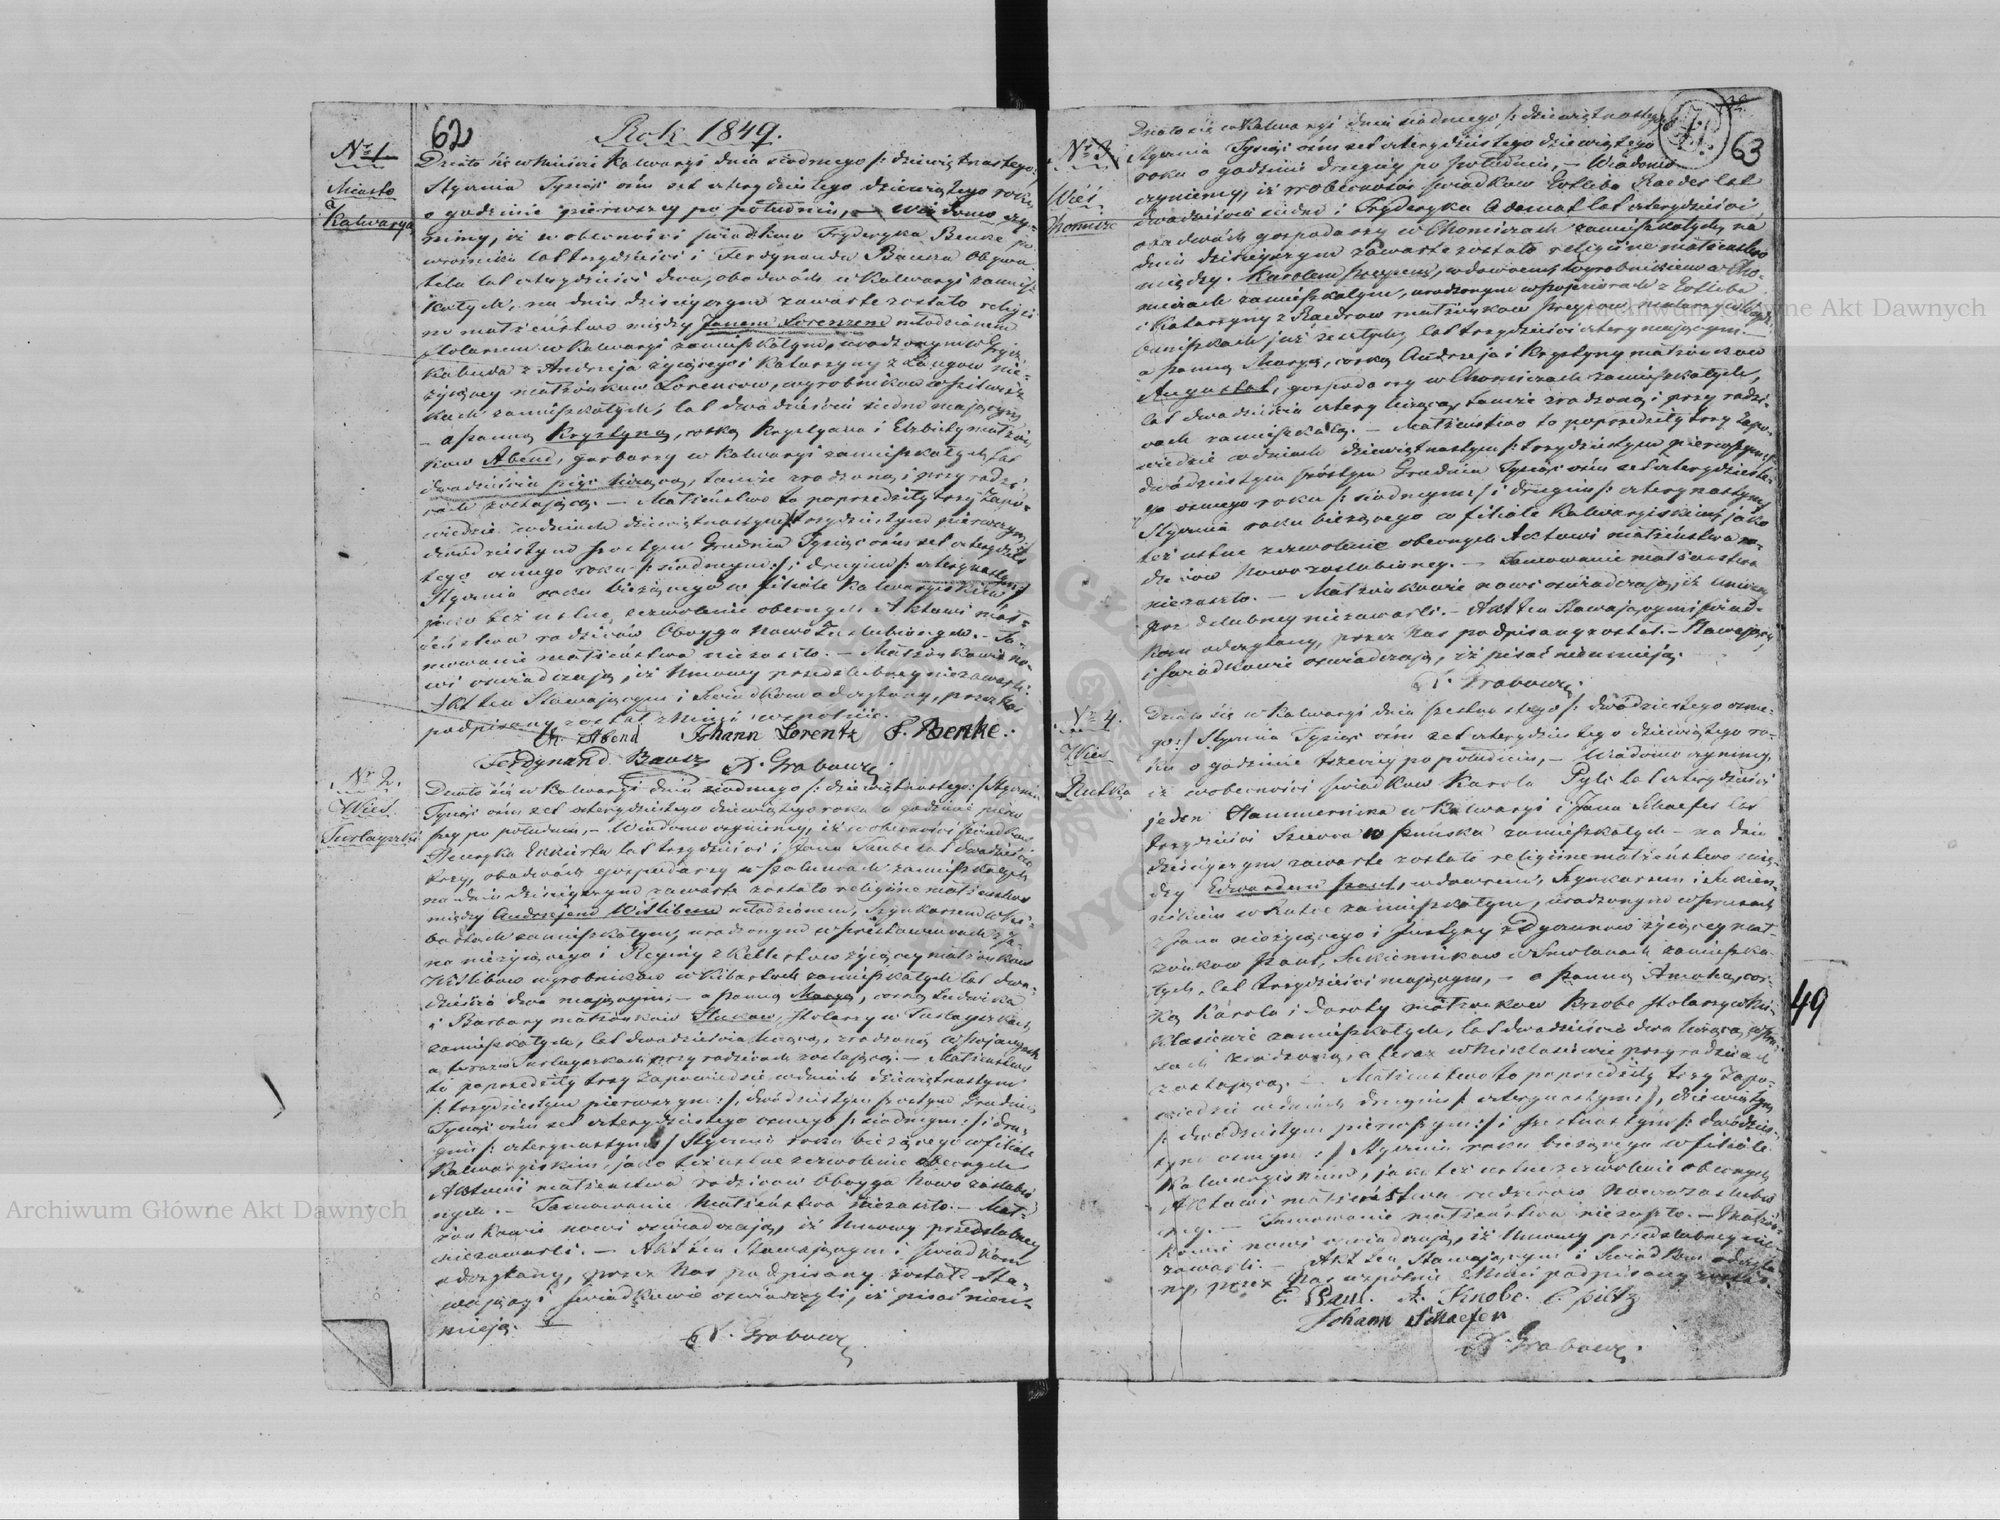 62
Rok 1849.
Nr 1.
Miasto
Kalwarya
Działo się w Mieście Kalwaryi dnia siódmego /: dziewiętnastego:
Stycznia Tysiąc osm set czterdziestego dziewiątego roku
o godzinie pierwszey po południu, — Wiadomo czy-
nimy, iż w obecności świadków Fryderyka Benke po
lat trzydzieści i Ferdynanda Bausza Obywa
tela lat czterdzieści dwa, obadwóch w Kalwaryi zamiesz
kałych, na dniu dzisieyszym zawarte zostało religij
ne małżeństwo między Janem Lorenzem młodzianem
Stolarzem w Kalwaryi zamieszkałym, urodzonym w Grysz
kabuda z Andrzeja żyjącego i Katarzyny z Langów nie-
żyjącey małżonków Lorenców, wyrobników w
kach zamieszkałych, lat dwadzieścia siedm mającym
— a panną Krystyną, córką Krystyana i Elżbiety małżon
ków Abend, garbarzy w Kalwaryi zamieszkałych, lat
dwadzieścia pięć liczącą, tamże zrodzoną i przy rodzi
cach zostającą. — Małżeństwo to poprzedziły trzy Zapo-
wiedzie w dniach dziewiętnastym /: trzydziestym pierwszym
dwudziestym szóstym Grudnia Tysiąc osm set czterdzies
tego osmego roku /: siódmym :/ i drugim /: czternastym /
Stycznia roku bieżącego w filiale Kalwaryiskim,
jako też ustne zezwolenie obecnych Aktowi mał-
żeństwa rodziców Oboyga Nowo Zaślubionych. — Ta-
mowanie małżeństwa nie zaszło. — Małżonkowie no-
wi oświadczają, iż Umowy przedślubney nie zawarli:
Akt ten Stawającym i świadkom odczytany, przez Nas
podpisany został z Nimi wspólnie.
Ch. Abend Johann Lorentz F. Benke.
Ferdynand Bausz A. Grabow
Nr 2.
Wieś
Działo się w Kalwaryi dnia siódmego /: dziewiętnastego: / Stycznia
Tysiąc osm set czterdziestego dziewiątego roku o godzinie pierw
szey po południu, — Wiadomo czynimy, iż w obecności świadków
Henryka Ekkerta lat trzydzieści i Jana Saube lat dwadzieścia
trzy, obadwóch gospodarzy w zamieszkałych
na dniu dzisieyszym zawarte zostało religijne małżeństwo
między Andrzejem Witlibem młodzianem, Szynkarzem w Ki
bartach zamieszkałym, urodzonym w z Ja-
na nieżyjącego i Reginy z żyjącey małżonków
Witlibów wyrobników w Kibartach zamieszkałych lat dwa-
dzieścia dwa mającym, — a panną Maryą, córką Ludwika
i Barbary małżonków, stolarzy w
zamieszkałych, lat dwadzieścia liczącą, zrodzoną w
a teraz w przy rodzicach zostającą. — Małżeństwo
to poprzedziły trzy Zapowiedzie w dniach dziewiętnastym
/: trzydziestym pierwszym :/, dwudziestym szóstym Grudnia
Tysiąc osm set czterdziestego osmego /: siódmym :/ i dru-
gim /: czternastym :/ Stycznia roku bieżącego w filiale
Kalwaryiskim, jako też ustne zezwolenie obecnych
Aktowi małżeństwa rodziców Oboyga Nowo zaślubio
nych. — Tamowanie Małżeństwa nie zaszło. — Mał-
żonkowie nowi oświadczają, iż Umowy przedślubney
nie zawarli. — Akt ten Stawającym i świadkom
odczytany, przez Nas podpisany został. Sta-
wający i świadkowie oświadczyli, iż pisać nieu-
mieją.
A. Grabow
63
Nr 3.
Wieś
Działo się w Kalwaryi dnia siódmego /: dziewiętnastego
Stycznia Tysiąc osm set czterdziestego dziewiątego
roku o godzinie drugiey po południu, — Wiadomo
czynimy, iż w obecności świadków Gotliba Raeder lat
dwadzieścia siedm i Fryderyka Adomat lat czterdzieści,
obadwóch gospodarzy w Chomiczach zamieszkałych, na
dniu dzisieyszym zawarte zostało religijne małżeństwo
między Karolem, wdowcem, wyrobnikiem w Cho-
miczach zamieszkałym, urodzonym w z Gotliba
i Katarzyny z Raedrów małżonków
już zmarłych, lat trzydzieści cztery mającym. —
a panną Maryą, córką Andrzeja i Krystyny małżonków
Augustat, gospodarzy w Chomiczach zamieszkałych,
lat dwadzieścia cztery liczącą, tamże zrodzoną i przy rodzi-
cach zamieszkałą. — Małżeństwo to poprzedziły trzy Zapo-
wiedzie w dniach dziewiętnastym /: trzydziestym pierwszym :/
dwudziestym szóstym Grudnia Tysiąc osm set czterdzieste-
go osmego roku /: siódmym :/ i drugim /: czternastym
Stycznia roku bieżącego w filiale Kalwaryiskim, jako
też ustne zezwolenie obecnych Aktowi małżeństwa ro-
dziców Nowozaślubioney. — Tamowanie małżeństwa
nie zaszło. — Małżonkowie nowi oświadczają, iż Umowy
przedślubney niezawarli. — Akt ten Stawającym i świad-
kom odczytany, przez Nas podpisany został. — Stawający
i świadkowie oświadczają, iż pisać nieumieją.
A. Grabow
Nr 4.
Wieś
Rutka
Działo się w Kalwaryi dnia szesnastego /: dwudziestego osme-
go :/ Stycznia Tysiąc osm set czterdziestego dziewiątego ro-
ku o godzinie trzeciey po południu, — Wiadomo czynimy,
iż w obecności świadków Karola Pylc lat czterdzieści
jeden w Kalwaryi i Jana Schaefer lat
trzydzieści Szewca w zamieszkałych — na dniu
dzisieyszym zawarte zostało religijne małżeństwo mię-
dzy Edwardem Paul, wdowcem, Szynkarzem i Sukien-
nikiem w Rutce zamieszkałym, urodzonym w Prusach
z Jana nieżyjącego i Justyny z żyjącey mał-
żonków Paul, Sukienników w zamieszka-
łych, lat trzydzieści mającym, — a panną Amalią, cór-
ką Karola i Doroty małżonków Knobe, stolarzy w Mi-
klasiewie zamieszkałych, lat dwadzieścia dwa liczącą, w Pru
sach zrodzoną, a teraz w Miklasiewie przy rodzicach
zostającą. — Małżeństwo to poprzedziły trzy Zapo-
wiedzie w dniach drugim /: czternastym :/, dziewiątym
/: dwudziestym pierwszym :/ i szesnastym /: dwudzies-
tym osmym :/ Stycznia roku bieżącego w filiale
Kalwaryiskim, jako też ustne zezwolenie obecnych
Aktowi małżeństwa rodziców Nowozaślubio
ney. — Tamowanie małżeństwa nie zaszło. — Małżon-
kowie nowi oświadczają, iż Umowy przedślubney nie-
zawarli. — Akt ten Stawającym i Świadkom odczyta
ny, przez Nas wspólnie z Nimi podpisany został.
E. Paul. A. Knobe. C Piltz
Johann Schaefer
A. Grabow
49
Archiwum Główne Akt Dawnych
Archiwum Główne Akt Dawnych